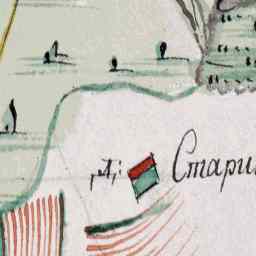 д: Стари